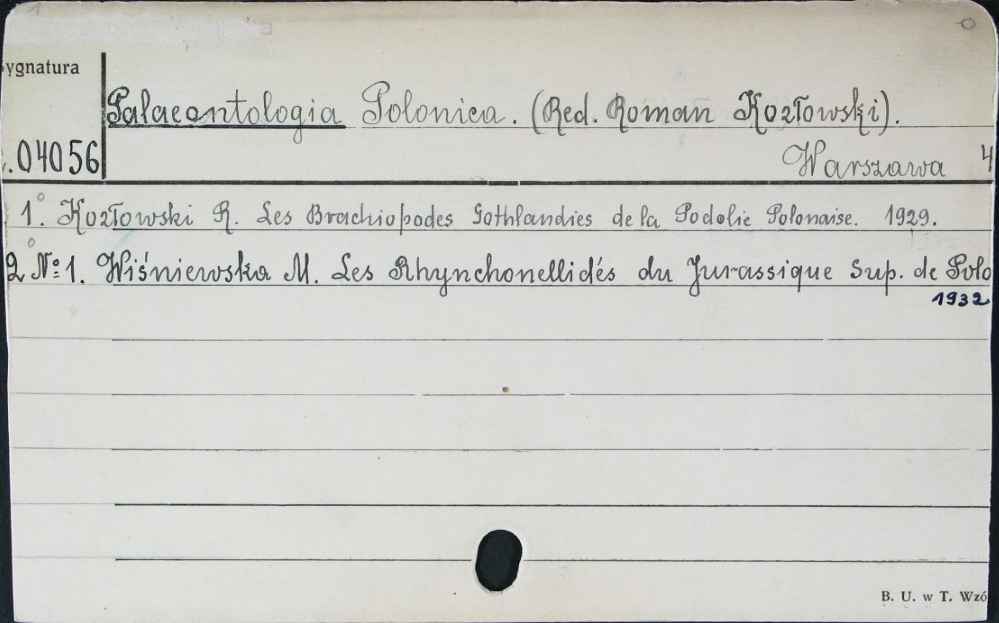 ygnatura
Palaeontologia Polonica. (Red. Roman Kozłowski).
.04056
Warszawa 4
1°. Kozłowski R. Les Brachiopodes Gothlandies de la Podolie Polonaise. 1929.
2° №1. Wiśniewska M. Les Rhynchonellidés du Jurassique Sup. de Polo
1932
B. U. w T. Wzó